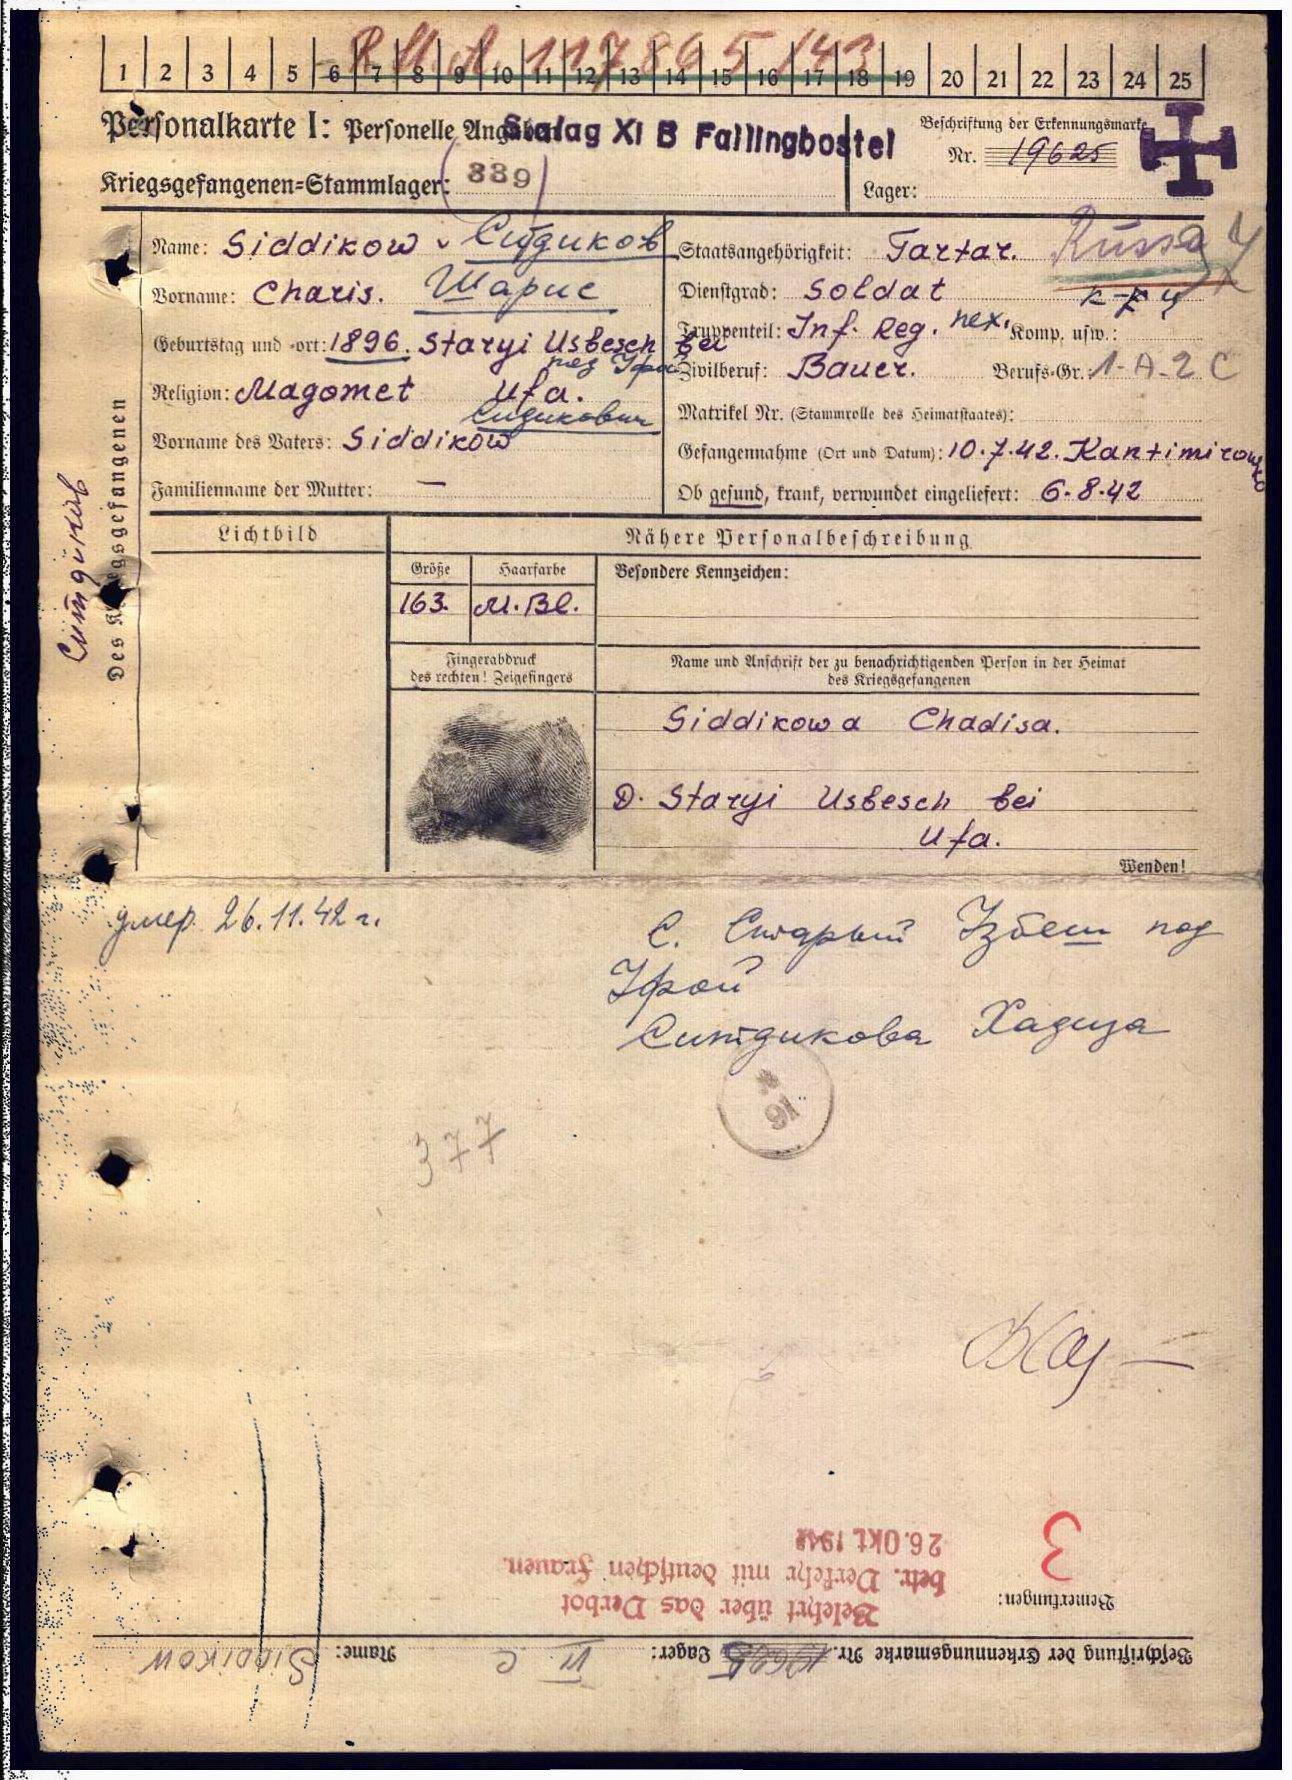 R.M.A. 117865/43
1 2 3 4 5 6 7 8 9 10 11 12 13 14 15 16 17 18 19 20 21 22 23 24 25
Personalkarte I: Personelle Angaben
Stalag XI B Fallingbostel
Beschriftung der Erkennungsmarke
Nr. 19625
Kriegsgefangenen=Stammlager: 339
Lager:
Des Kriegsgefangenen
Name: Siddikow Ситдиков
Vorname: Charis. Шарис
Geburtstag und -ort: 1896. Staryi Usbesch bei
под Уфой
Religion: Magomet Ufa.
Сидикович
Vorname des Vaters: Siddikow
Familienname der Mutter: —
Staatsangehörigkeit: Tartar. Russe
Dienstgrad: Soldat
Truppenteil: Inf. Reg. пех. Komp. usw.:
Zivilberuf: Bauer. Berufs-Gr.: 1-A-2 C
Matrikel Nr. (Stammrolle des Heimatstaates):
Gefangennahme (Ort und Datum): 10.7.42. Kantimirowka
Ob gesund, krank, verwundet eingeliefert: 6.8.42
Lichtbild
Nähere Personalbeschreibung
Größe Haarfarbe Besondere Kennzeichen:
163. M.Bl.
Fingerabdruck
des rechten! Zeigefingers
Name und Anschrift der zu benachrichtigenden Person in der Heimat
des Kriegsgefangenen
Siddikowa Chadisa.
D. Staryi Usbesch bei
Ufa.
Wenden!
умер 26.11.42 г.
С. Старый Узбеш под
Уфой
Ситдикова Хадиза
16
377
3
Bemerkungen:
26. Okt. 1942
betr. Verkehr mit deutschen Frauen.
Belehrt über das Verbot
Beschriftung der Erkennungsmarke Nr. 19625 Lager: VI C Name: SIDDIKOW